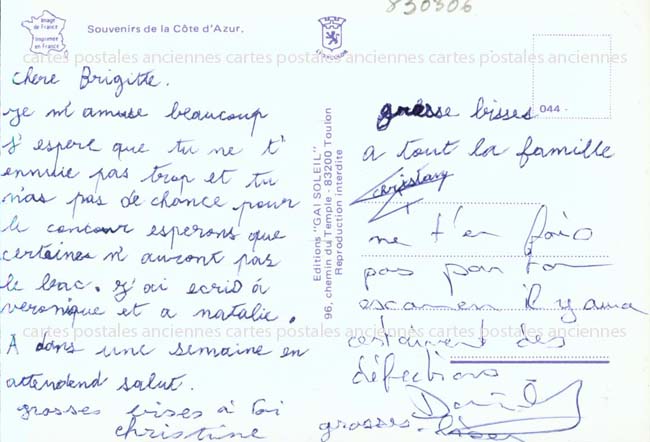 830306
Image de France
Imprimée en France
Souvenirs de la Côte d'Azur.
cartes postales anciennes cartes postales anciennes cartes postales anciennes
chere Brigitte.
je m'amuse beaucoup
j'espere que tu ne t'
ennuie pas trop et tu
n'as pas de chance pour
le concour esperons que
certaines n'auront pas
le bac. j'ai ecris à
veronique et a natalie.
A dans une semaine en
attendend salut.
grosses bises à toi
christine
Editions "GAI SOLEIL"
96, chemin du Temple - 83200 Toulon
Reproduction interdite
044 -
grosse bisses
a tout la famille
ne t'en fais
pas pour ton
escamen il y aura
des
défections
grosses bises
cartes postales anciennes cartes postales anciennes cartes postales anciennes